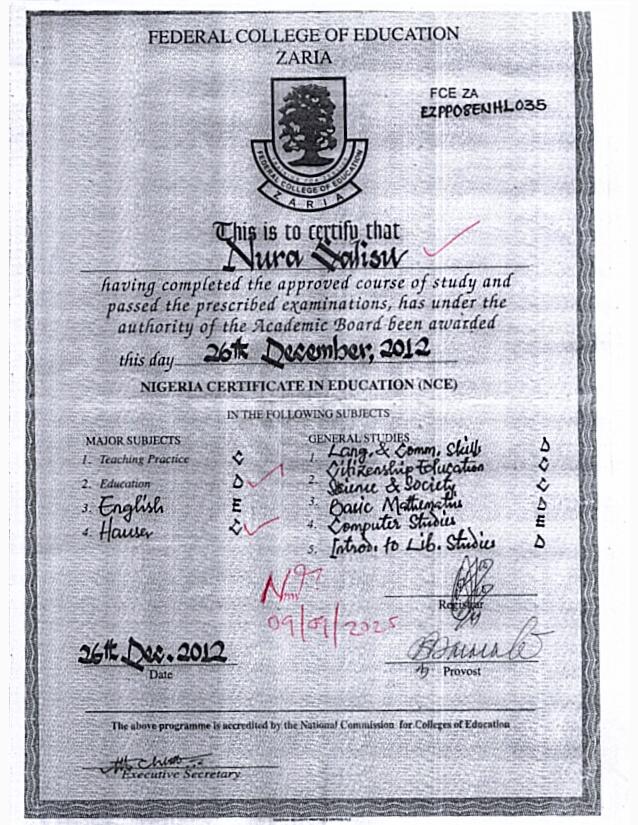 FEDERAL COLLEGE OF EDUCATION
ZARIA
FCE ZA
EZPP08ENHL035
FEDERAL COLLEGE OF EDUCATION
ZARIA
This is to certify that
Nura Salisu
having completed the approved course of study and
passed the prescribed examinations, has under the
authority of the Academic Board been awarded
this day 26th December, 2012
NIGERIA CERTIFICATE IN EDUCATION (NCE)
IN THE FOLLOWING SUBJECTS
MAJOR SUBJECTS
1. Teaching Practice C
2. Education D
3. English E
4. Hausa C
GENERAL STUDIES
1. Lang. & Comm. Skills D
Citizenship Education C
2. Science & Society C
3. Basic Mathematics D
4. Computer Studies E
5. Introd. to Lib. Studies D
Registrar
09/09/2025
26th Dec. 2012
Date
Provost
The above programme is accredited by the National Commission for Colleges of Education
Executive Secretary